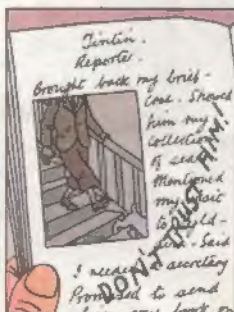 Tintin.
Reporter.
Brought back my brief-
case. Showed
him my
collection
of sea
Mentioned
my visit
to
Said
I needed a secretary
Promised to send
my book
DON'T TRUST HIM!